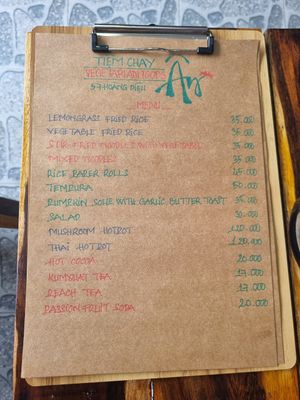 TIEM CHAY
VEGETARIAN FOODS An
57 HOANG DIEU
MENU
LEMONGRASS FRIED RICE 35.000
VEGETABLE FRIED RICE 35.000
STIR FRIED NOODLES WITH VEGETABLE 35.000
MIXED NOODLES 35.000
RICE PAPER ROLLS 45.000
TEMPURA 50.000
PUMPKIN SOUP WITH GARLIC BUTTER TOAST 35.000
SALAD 30.000
MUSHROOM HOTPOT 120.000
THAI HOTPOT 120.000
HOT COCOA 20.000
KUMQUAT TEA 17.000
PEACH TEA 17.000
PASSION FRUIT SODA 20.000